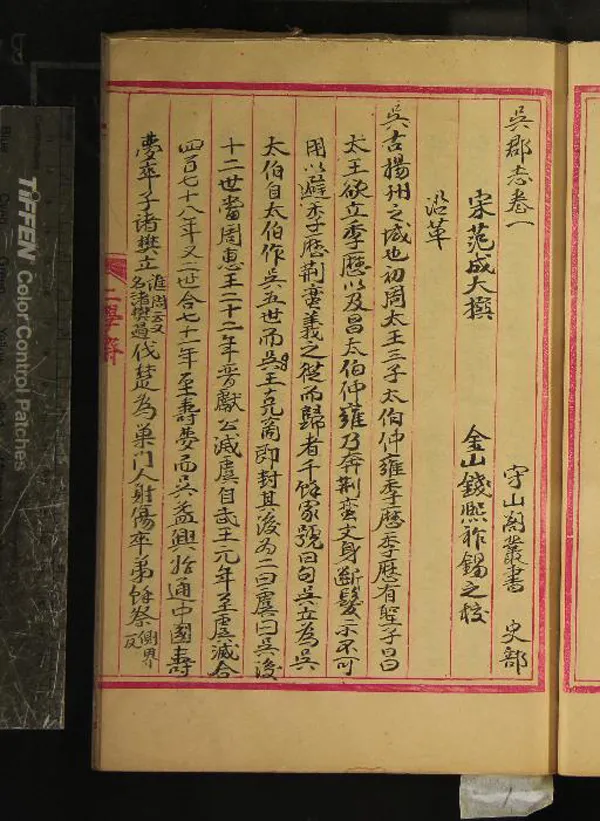 吳郡志卷一
守山閣叢書 史部
宋范成大撰
金山錢熙祚錫之校
沿革
吳古揚州之域也初周太王三子太伯仲雍季歷季歷有聖子曰昌
太王欲立季歷以及昌太伯仲雍乃奔荆蠻文身斷髮示不可
用以避季歷荆蠻義之從而歸者千餘家號曰句吳立為吳
太伯自太伯作吳五世而吳王克商即封其後為二曰虞曰吳後
十二世當周惠王二十二年晉獻公滅虞自武王元年至虞滅合
四百七十八年又二世合七十一年至壽夢而吳益興始通中國壽
夢卒子諸樊立
譙周云又
名諸樊過
伐楚為巢門人射傷卒弟餘祭
側界
反
二學齋
TIFFEN Color Control Patches
1